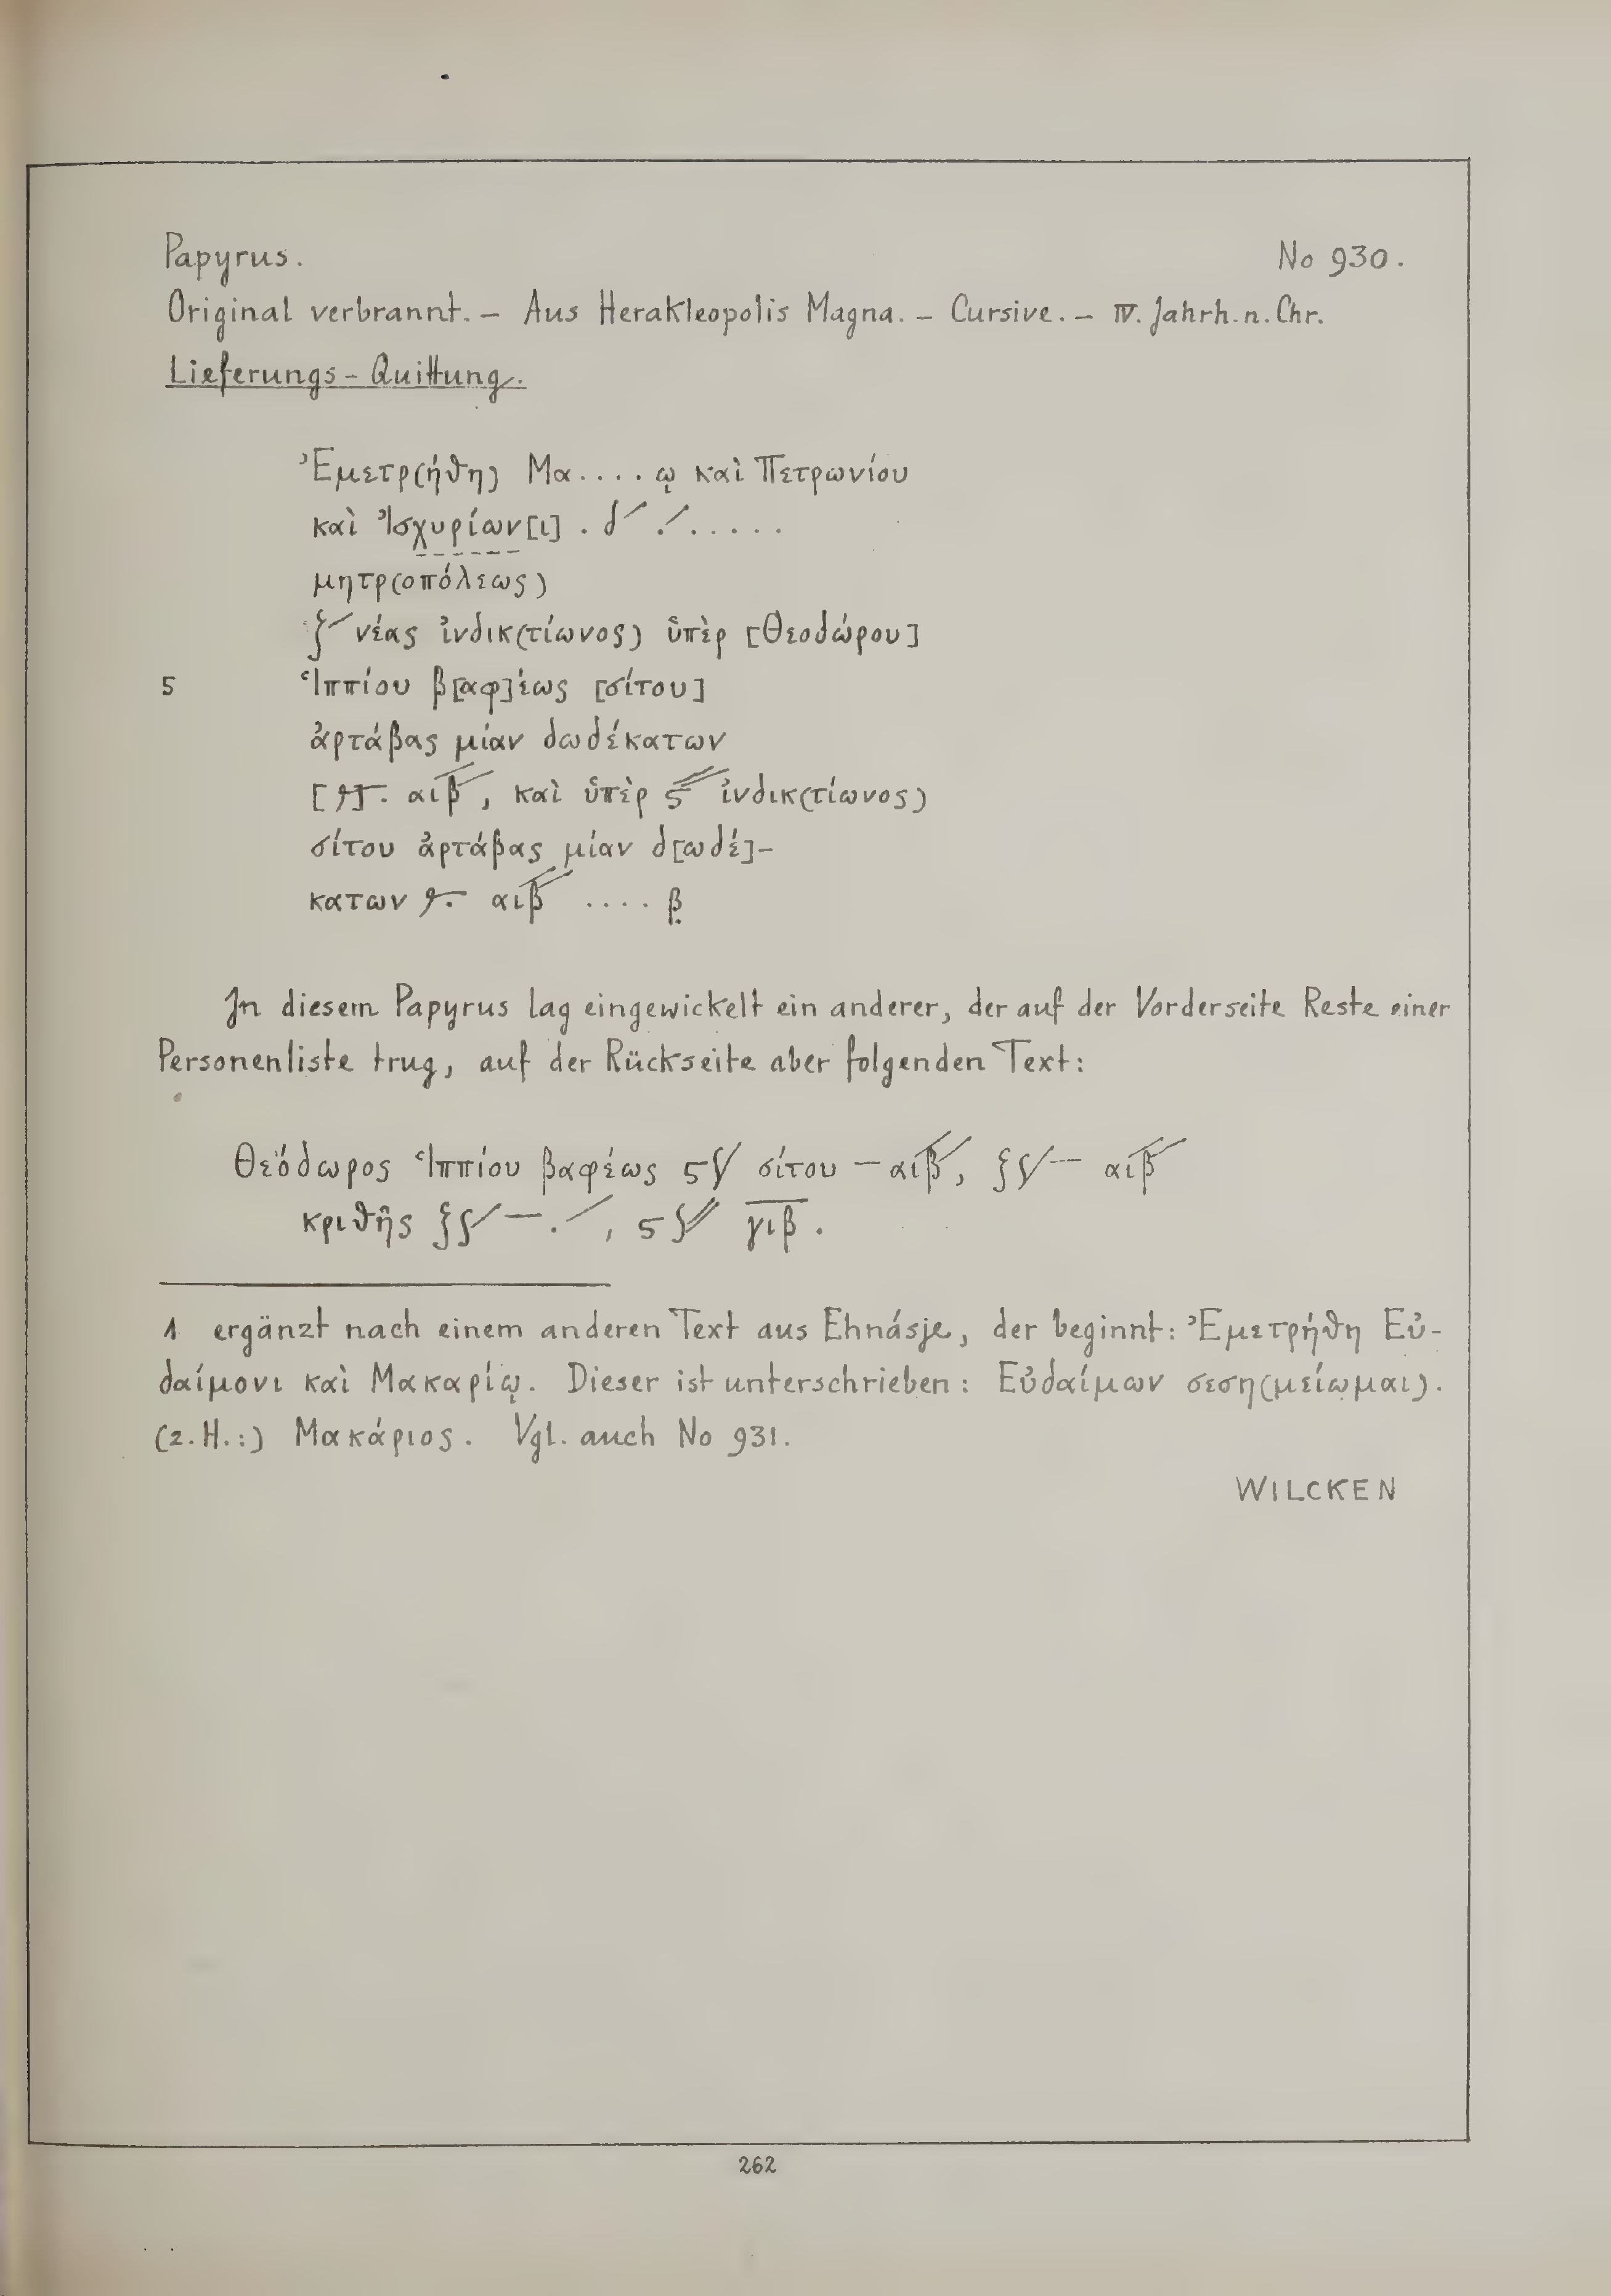 Papyrus. No 930.
Original verbrannt. – Aus Herakleopolis Magna. – Cursive. – IV. Jahrh. n. Chr.
Lieferungs-Quittung.
Ἐμετρ(ήθη) Μα....ῳ καὶ Πετρωνίου
καὶ Ἰσχυρίων[ι] . δ´ .´.....
μητρ(οπόλεως)
ζ´ νέας ἰνδικ(τίωνος) ὑπὲρ [Θεοδώρου]
5 Ἱππίου β[αφ]έως [σίτου]
ἀρτάβας μίαν δωδέκατων
αιβ´´, καὶ ὑπὲρ ϛ´´ ἰνδικ(τίωνος)
σίτου ἀρτάβας μίαν δ[ωδέ]-
κατων αιβ´´ .... β̣
In diesem Papyrus lag eingewickelt ein anderer, der auf der Vorderseite Reste einer
Personenliste trug, auf der Rückseite aber folgenden Text:
Θεόδωρος Ἱππίου βαφέως ϛ σίτου – αιβ´´, ζ – αιβ´´
κριθῆς ζ – .´, ϛ γιβ.
1 ergänzt nach einem anderen Text aus Ehnásje, der beginnt: Ἐμετρήθη Εὐ-
δαίμονι καὶ Μακαρίῳ. Dieser ist unterschrieben: Εὐδαίμων σεση(μείωμαι).
(2. H.:) Μακάριος. Vgl. auch No 931.
WILCKEN
262